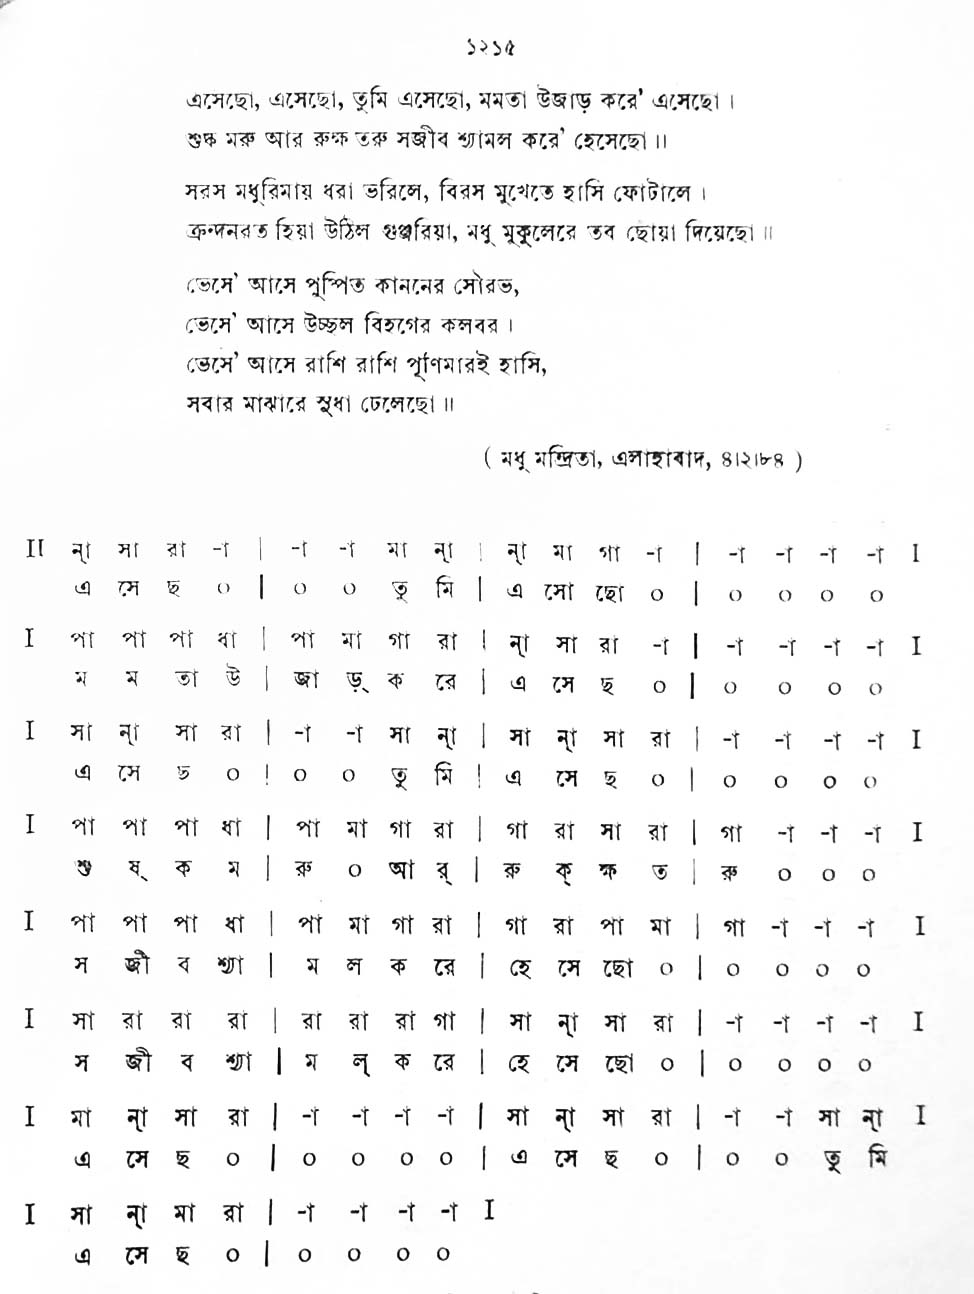 ১২১৫
এসেছো, এসেছো, তুমি এসেছো, মমতা উজাড় করে' এসেছো ।
শুষ্ক মরু আর রুক্ষ তরু সজীব শ্যামল করে' হেসেছো ॥
সরস মধুরিমায় ধরা ভরিলে, বিরস মুখেতে হাসি ফোটালে ।
ক্রন্দনরত হিয়া উঠিল গুঞ্জরিয়া, মধু মুকুলেরে তব ছোয়া দিয়েছো ॥
ভেসে' আসে পুষ্পিত কাননের সৌরভ,
ভেসে' আসে উচ্ছল বিহগের কলবর ।
ভেসে' আসে রাশি রাশি পূর্ণিমারই হাসি,
সবার মাঝারে সুধা ঢেলেছো ॥
( মধু মন্দ্রিতা, এলাহাবাদ, ৪।২।৮৪ )
II ন্া সা রা -া | -া -া মা ন্া | ন্া মা গা -া | -া -া -া -া I
এ সে ছ ০ | ০ ০ তু মি | এ সো ছো ০ | ০ ০ ০ ০
I পা পা পা ধা | পা মা গা রা | ন্া সা রা -া | -া -া -া -া I
ম ম তা উ | জা ড়্ ক রে | এ সে ছ ০ | ০ ০ ০ ০
I সা ন্া সা রা | -া -া সা ন্া | সা ন্া সা রা | -া -া -া -া I
এ সে ছ ০ | ০ ০ তু মি | এ সে ছ ০ | ০ ০ ০ ০
I পা পা পা ধা | পা মা গা রা | গা রা সা রা | গা -া -া -া I
শু ষ্ ক ম | রু ০ আ র্ | রু ক্ ক্ষ ত | রু ০ ০ ০
I পা পা পা ধা | পা মা গা রা | গা রা পা মা | গা -া -া -া I
স জী ব শ্যা | ম ল ক রে | হে সে ছো ০ | ০ ০ ০ ০
I সা রা রা রা | রা রা রা গা | সা ন্া সা রা | -া -া -া -া I
স জী ব শ্যা | ম ল্ ক রে | হে সে ছো ০ | ০ ০ ০ ০
I মা ন্া সা রা | -া -া -া -া | সা ন্া সা রা | -া -া সা ন্া I
এ সে ছ ০ | ০ ০ ০ ০ | এ সে ছ ০ | ০ ০ তু মি
I সা ন্া মা রা | -া -া -া -া I
এ সে ছ ০ | ০ ০ ০ ০